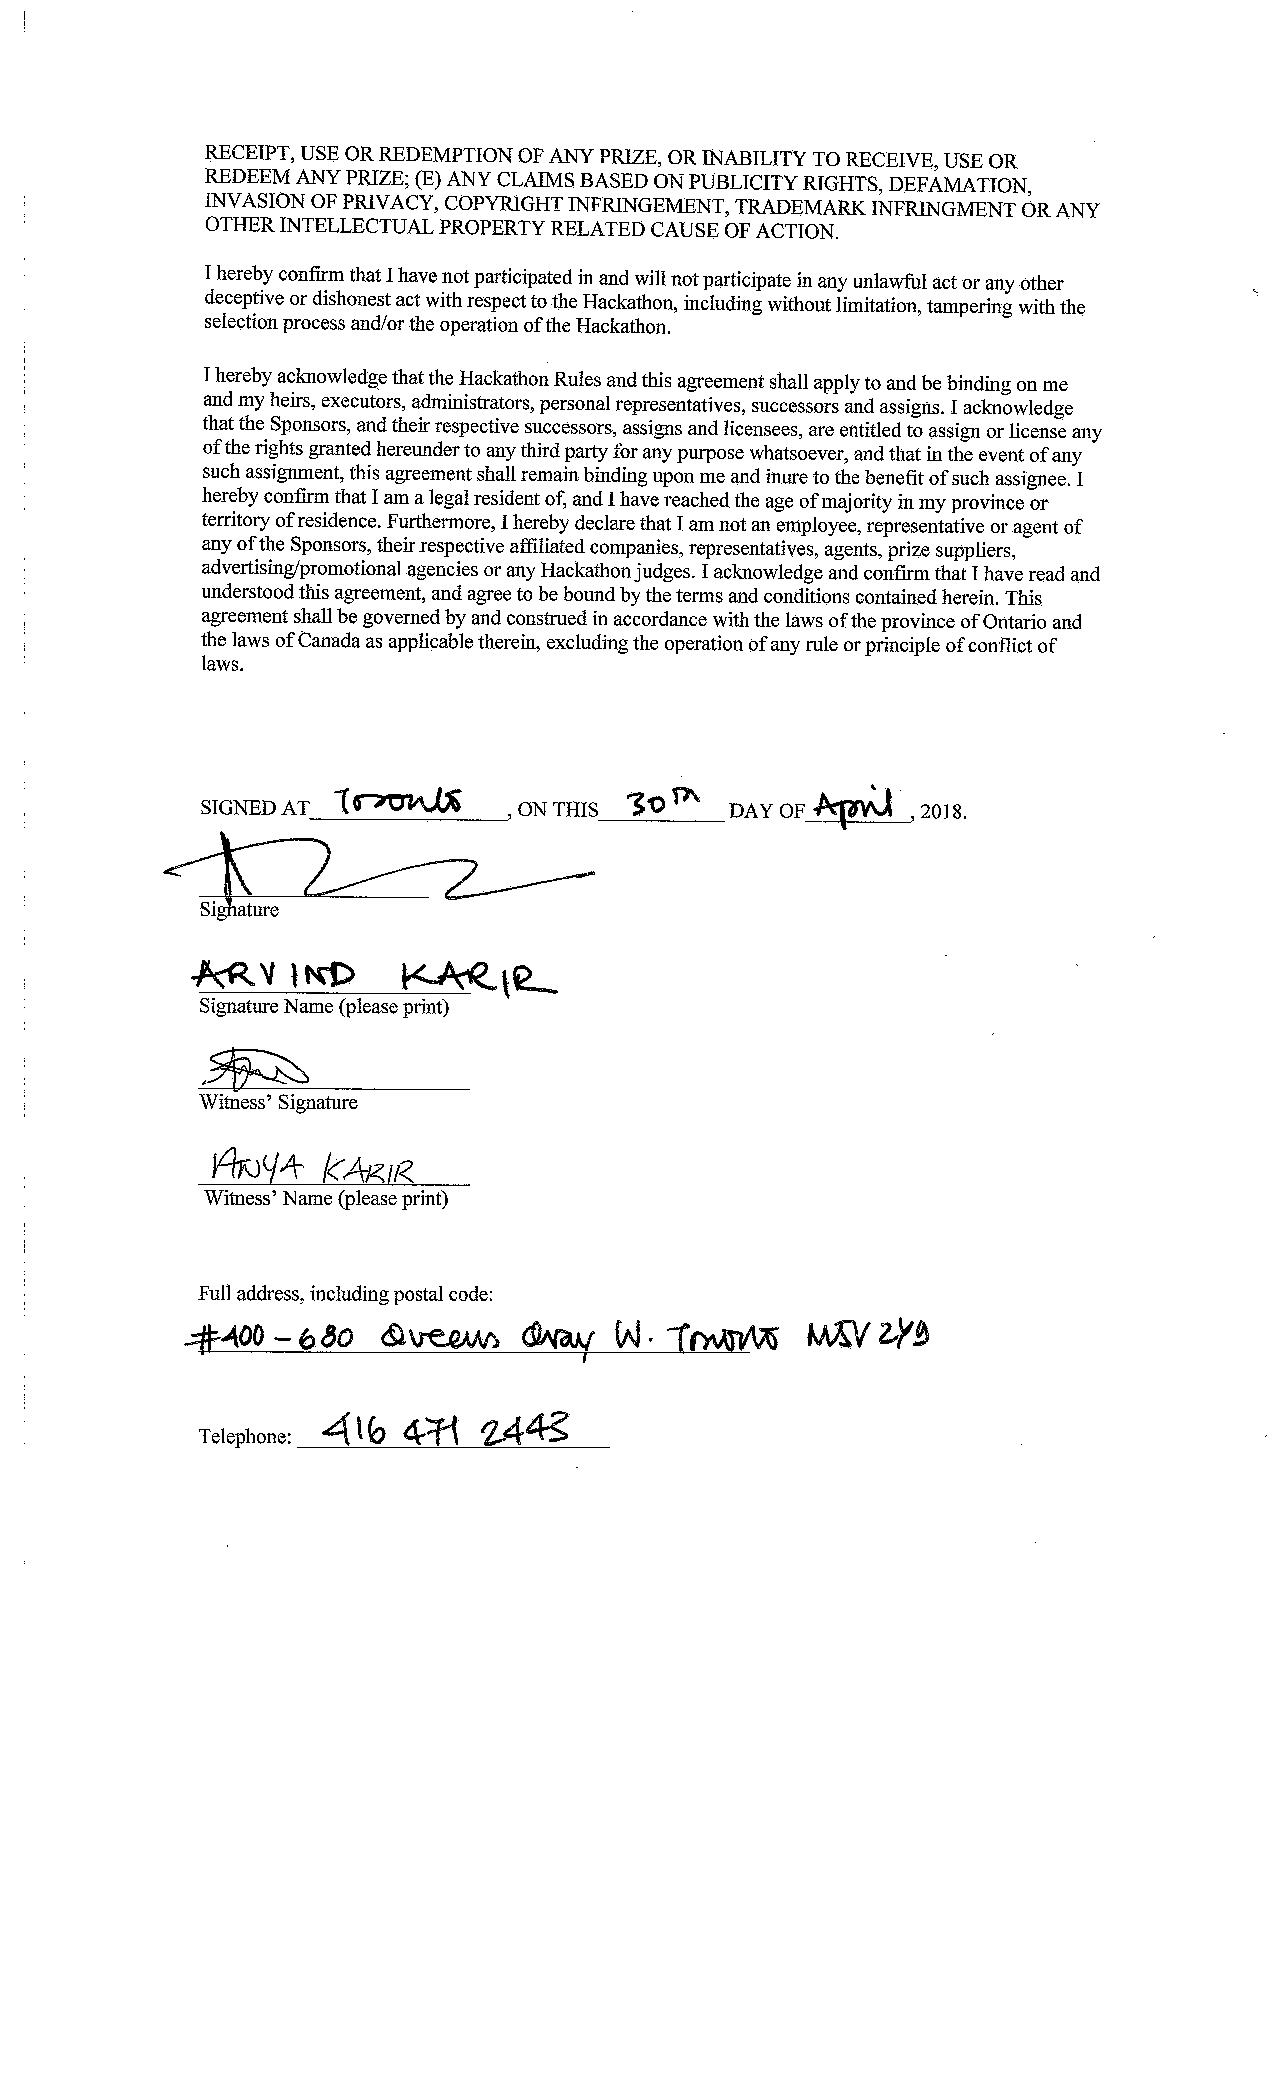 RECEIPT, USE OR REDEMPTION OF ANY PRIZE, OR INABILITY TO RECEIVE, USE OR
REDEEM ANY PRIZE; (E) ANY CLAIMS BASED ON PUBLICITY RIGHTS, DEFAMATION,
INVASION OF PRIVACY, COPYRIGHT INFRINGEMENT, TRADEMARK INFRINGMENT OR ANY
OTHER INTELLECTUAL PROPERTY RELATED CAUSE OF ACTION.
I hereby confirm that I have not participated in and will not participate in any unlawful act or any other
deceptive or dishonest act with respect to the Hackathon, including without limitation, tampering with the
selection process and/or the operation of the Hackathon.
I hereby acknowledge that the Hackathon Rules and this agreement shall apply to and be binding on me
and my heirs, executors, administrators, personal representatives, successors and assigns. I acknowledge
that the Sponsors, and their respective successors, assigns and licensees, are entitled to assign or license any
of the rights granted hereunder to any third party for any purpose whatsoever, and that in the event of any
such assignment, this agreement shall remain binding upon me and inure to the benefit of such assignee. I
hereby confirm that I am a legal resident of, and I have reached the age of majority in my province or
territory of residence. Furthermore, I hereby declare that I am not an employee, representative or agent of
any of the Sponsors, their respective affiliated companies, representatives, agents, prize suppliers,
advertising/promotional agencies or any Hackathon judges. I acknowledge and confirm that I have read and
understood this agreement, and agree to be bound by the terms and conditions contained herein. This
agreement shall be governed by and construed in accordance with the laws of the province of Ontario and
the laws of Canada as applicable therein, excluding the operation of any rule or principle of conflict of
laws.
SIGNED AT Toronto, ON THIS 30th DAY OF April, 2018.
Signature
ARVIND KARIR
Signature Name (please print)
Witness' Signature
ANYA KARIR
Witness' Name (please print)
Full address, including postal code:
#400 - 680 Queens Quay W. Toronto M5V 2Y9
Telephone: 416 471 2443